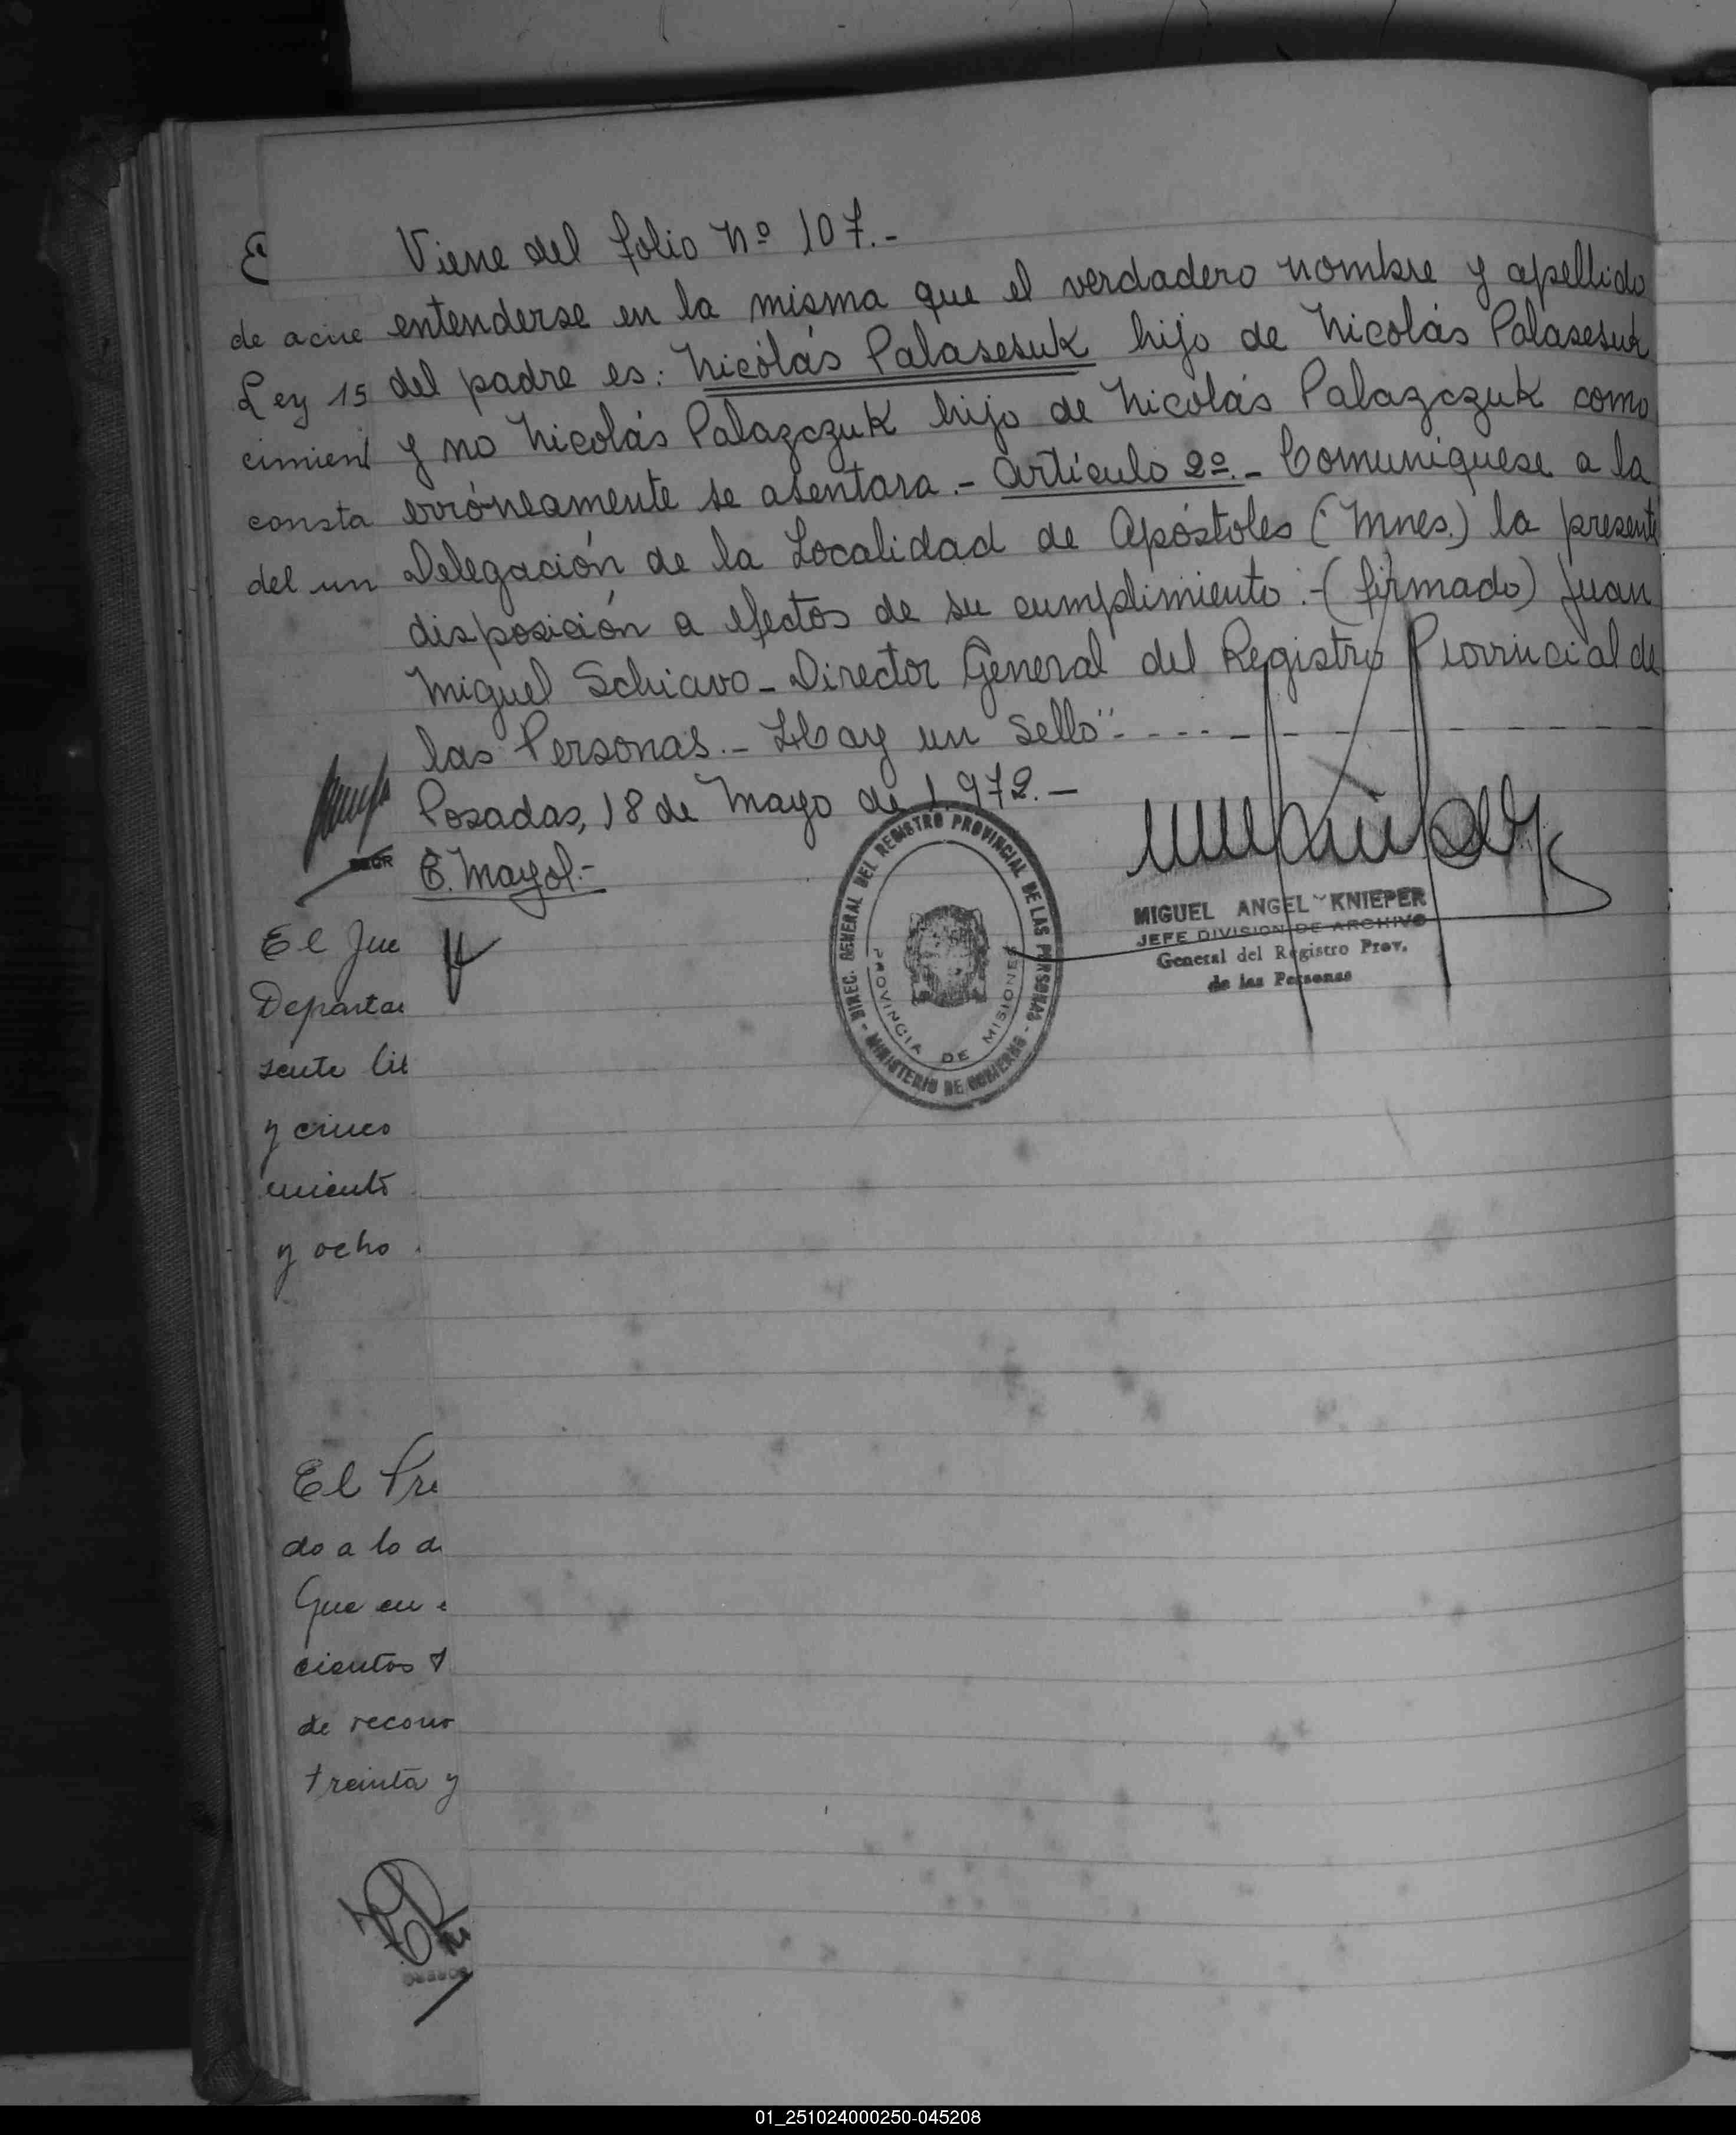 Viene del folio Nº 107.-
entenderse en la misma que el verdadero nombre y apellido
del padre es: Nicolás Palasesuk hijo de Nicolás Palasesuk
y no Nicolás Palazczuk hijo de Nicolás Palazczuk como
erróneamente se asentara.- Artículo 2º.- Comuníquese a la
Delegación de la Localidad de Apóstoles (Mnes.) la presente
disposición a efectos de su cumplimiento.-(firmado) Juan
Miguel Schiavo - Director General del Registro Provincial de
las Personas.- Hay un sello".- - - - - - -
Posadas, 18 de Mayo de 1.972.-
E. Mayol.-
DIREC. GENERAL DEL REGISTRO PROVINCIAL DE LAS PERSONAS - MINISTERIO DE GOBIERNO -
PROVINCIA DE MISIONES
MIGUEL ANGEL KNIEPER
JEFE DIVISION DE ARCHIVO
General del Registro Prov.
de las Personas
E
de acue
Ley 15
cimient
consta
del un
El Jue
Departa
sente lib
y cinco
miento
y ocho
El Pre
do a lo d
Que en
cientos t
de recono
treinta y
01_251024000250-045208